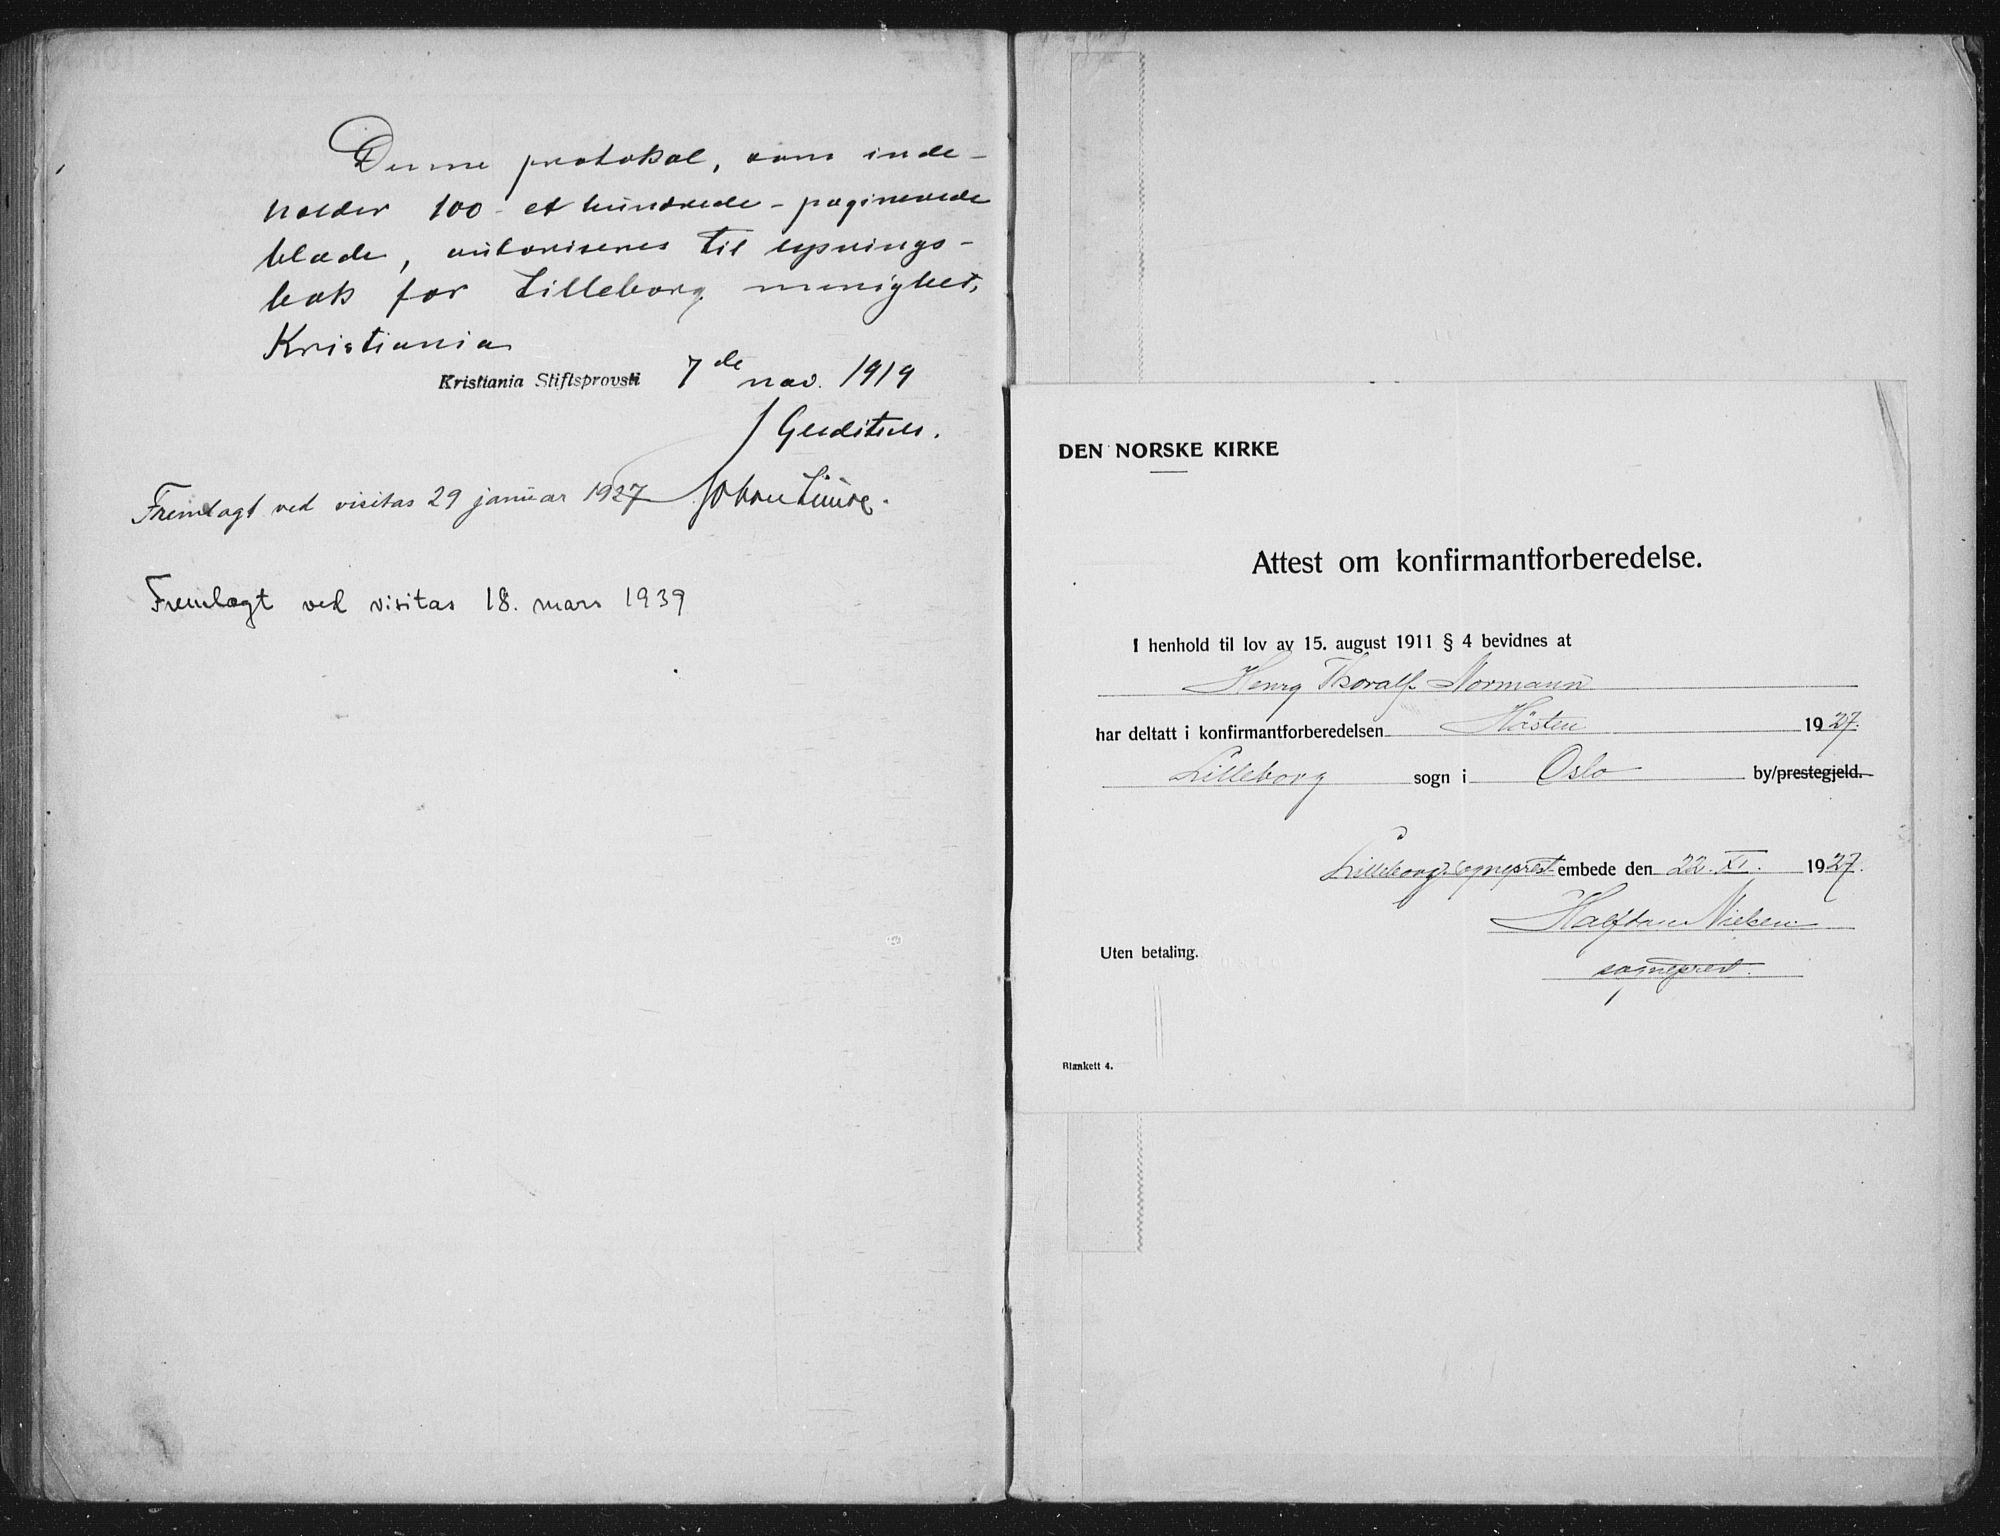 Denne protokol, som inde-
holder 100 - et hundrede - paginerede
blade, autoriseres til lysnings-
bok for Lilleborg menighet,
Kristiania
Kristiania Stiftsprovsti 7de nov. 1919
Fremlagt ved visitas 29 januar 1927 Johan Lunde.
Fremlagt ved visitas 18. mars 1939
DEN NORSKE KIRKE
Attest om konfirmantforberedelse.
I henhold til lov av 15. august 1911 § 4 bevidnes at
Henry Thoralf Normann
har deltatt i konfirmantforberedelsen Hösten 1927.
Lilleborg sogn i Oslo by/prestegjeld.
Lilleborg sogneprest embede den 22. XI. 1927.
Halfdan Nielsen
sogneprest.
Uten betaling.
Blankett 4.